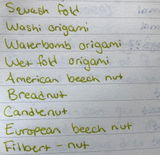 Squash fold
Washi origami
Waterbomb origami
Wet fold origami
American beech nut
Breadnut
Candlenut
European beech nut
Filbert - nut